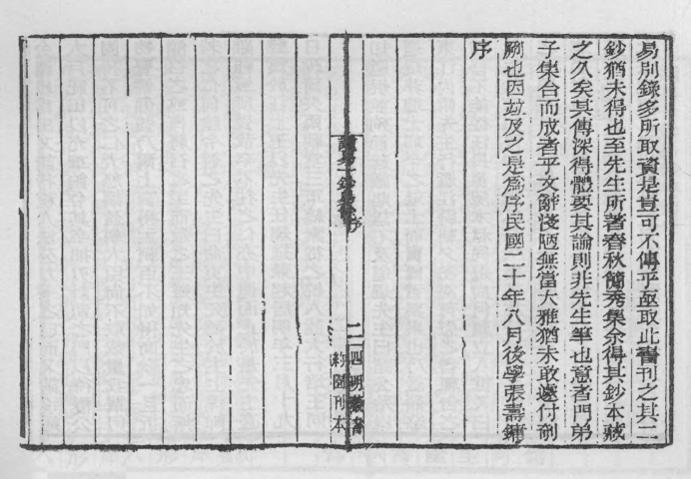 易別錄多所取資是豈可不傳乎亟取此書刊之其二
鈔猶未得也至先生所著春秋簡秀集余得其鈔本藏
之久矣其傳深得體要其論則非先生筆也意者門弟
子集合而成者乎文辭淺陋無當大雅猶未敢遽付剞
劂也因竝及之是爲序民國二十年八月後學張壽鏞
序
讀易一鈔易餘 序
二 四明叢書
約園刊本